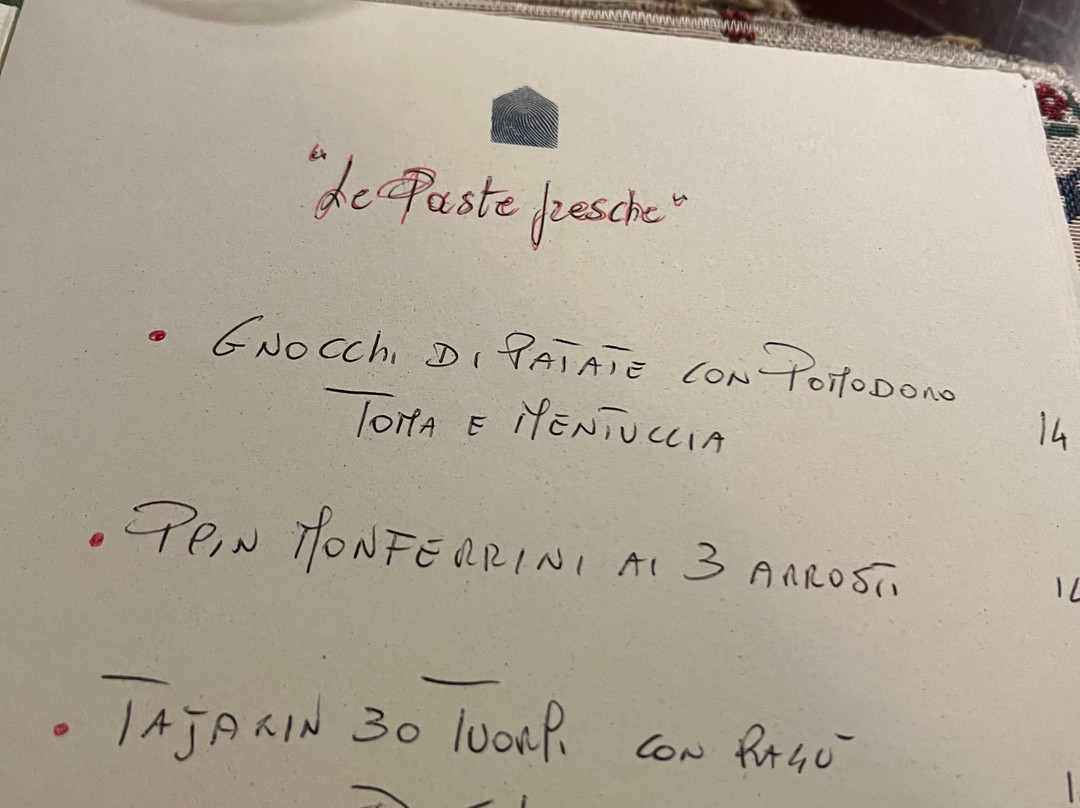 "Le Paste fresche"
• GNOCCHi DI PATATE CON POMODORO
TOMA E MENTUCCIA 14
• PLIN MONFERRINI AI 3 ARROSTI
• TAJARIN 30 TUORLI CON RAGÙ